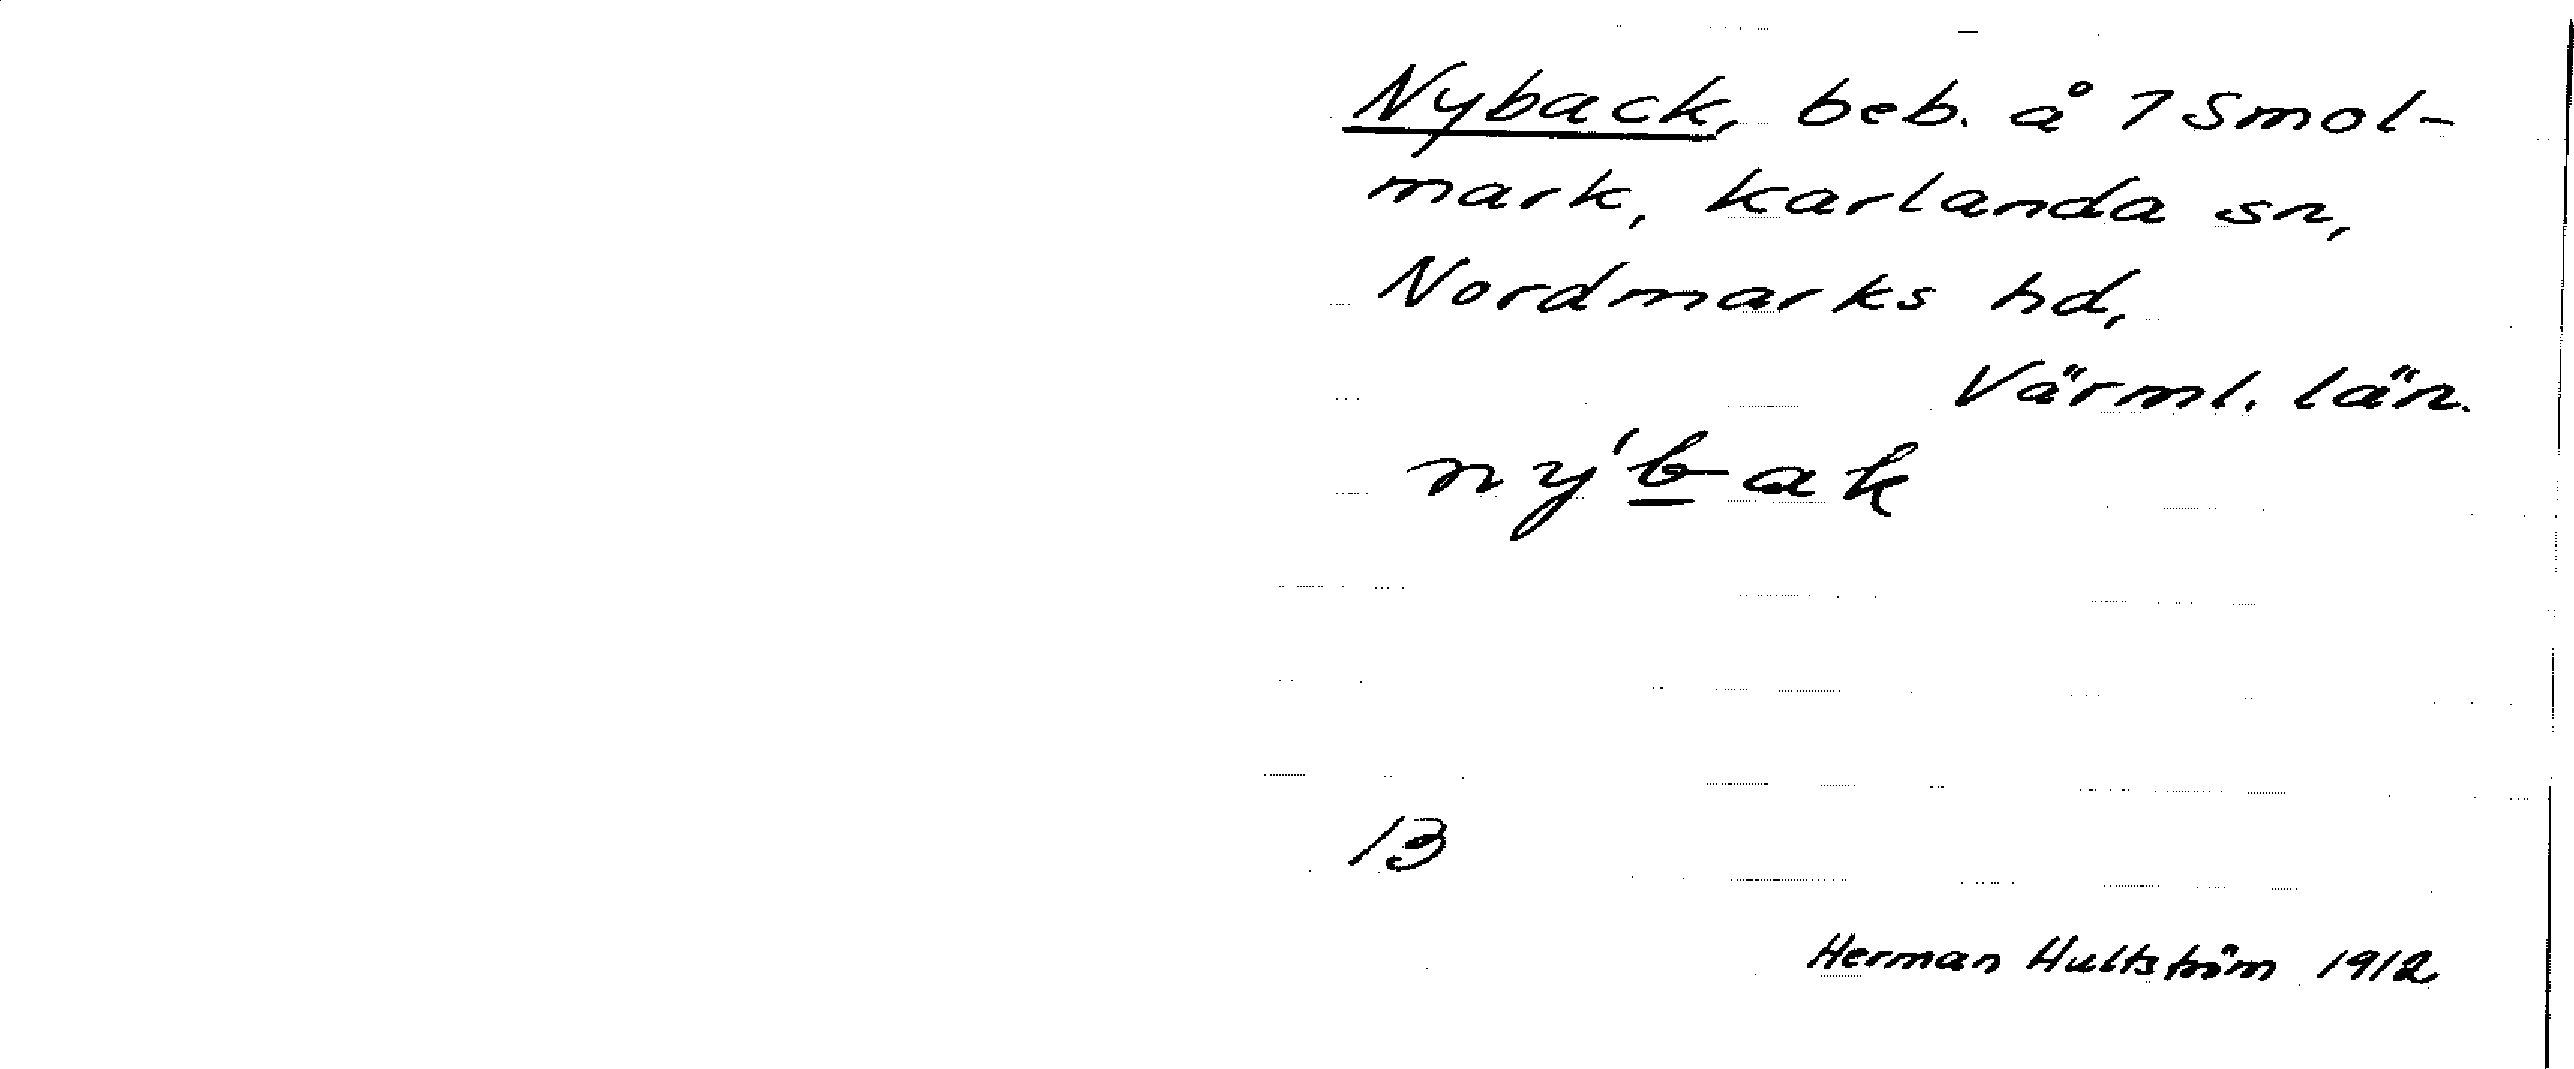 Nyback, beb. å 7 Smol-
mark, Karlanda sn,
Nordmarks hd,
Värml. län.
ny'bak
13
Herman Hultström 1912